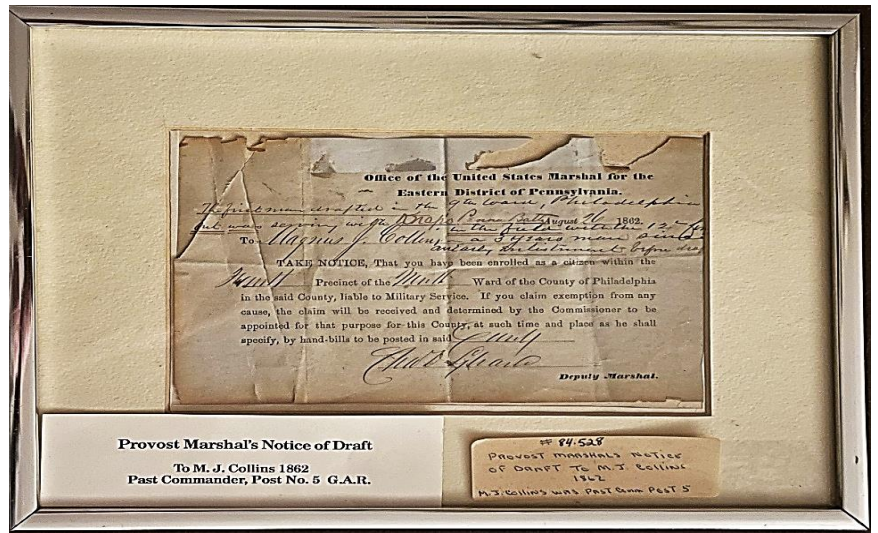 Office of the United States Marshal for the
Eastern District of Pennsylvania.
The first man drafted in the 9th Ward, Philadelphia
but was serving with August 26 1862.
in the field with the 12th
To Magnus J. Collins a 3 years man
TAKE NOTICE, That you have been enrolled as a citizen within the
Precinct of the Ninth Ward of the County of Philadelphia
in the said County, liable to Military Service. If you claim exemption from any
cause, the claim will be received and determined by the Commissioner to be
appointed for that purpose for this County, at such time and place as he shall
specify, by hand-bills to be posted in said County
Deputy Marshal.
Provost Marshal's Notice of Draft
To M. J. Collins 1862
Past Commander, Post No. 5 G.A.R.
# 84.528
PROVOST MARSHALS NOTICE
OF DRAFT TO M.J. COLLINS
1862
M.J. COLLINS WAS PAST COMM POST 5